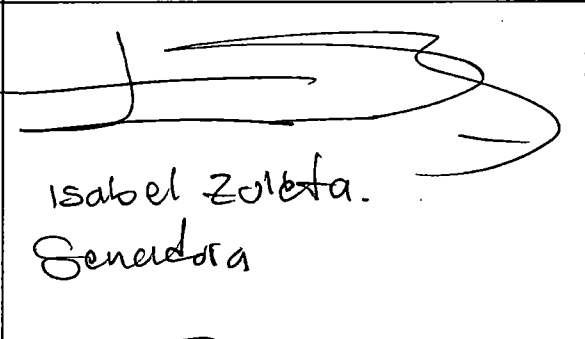 Isabel Zuleta.
Senadora